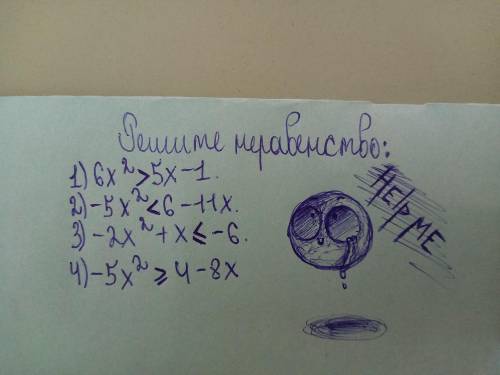 Решите неравенство:
1) 6x² > 5x - 1.
2) -5x² < 6 - 11x.
3) -2x² + x ≤ -6.
4) -5x² ≥ 4 - 8x
HELP ME